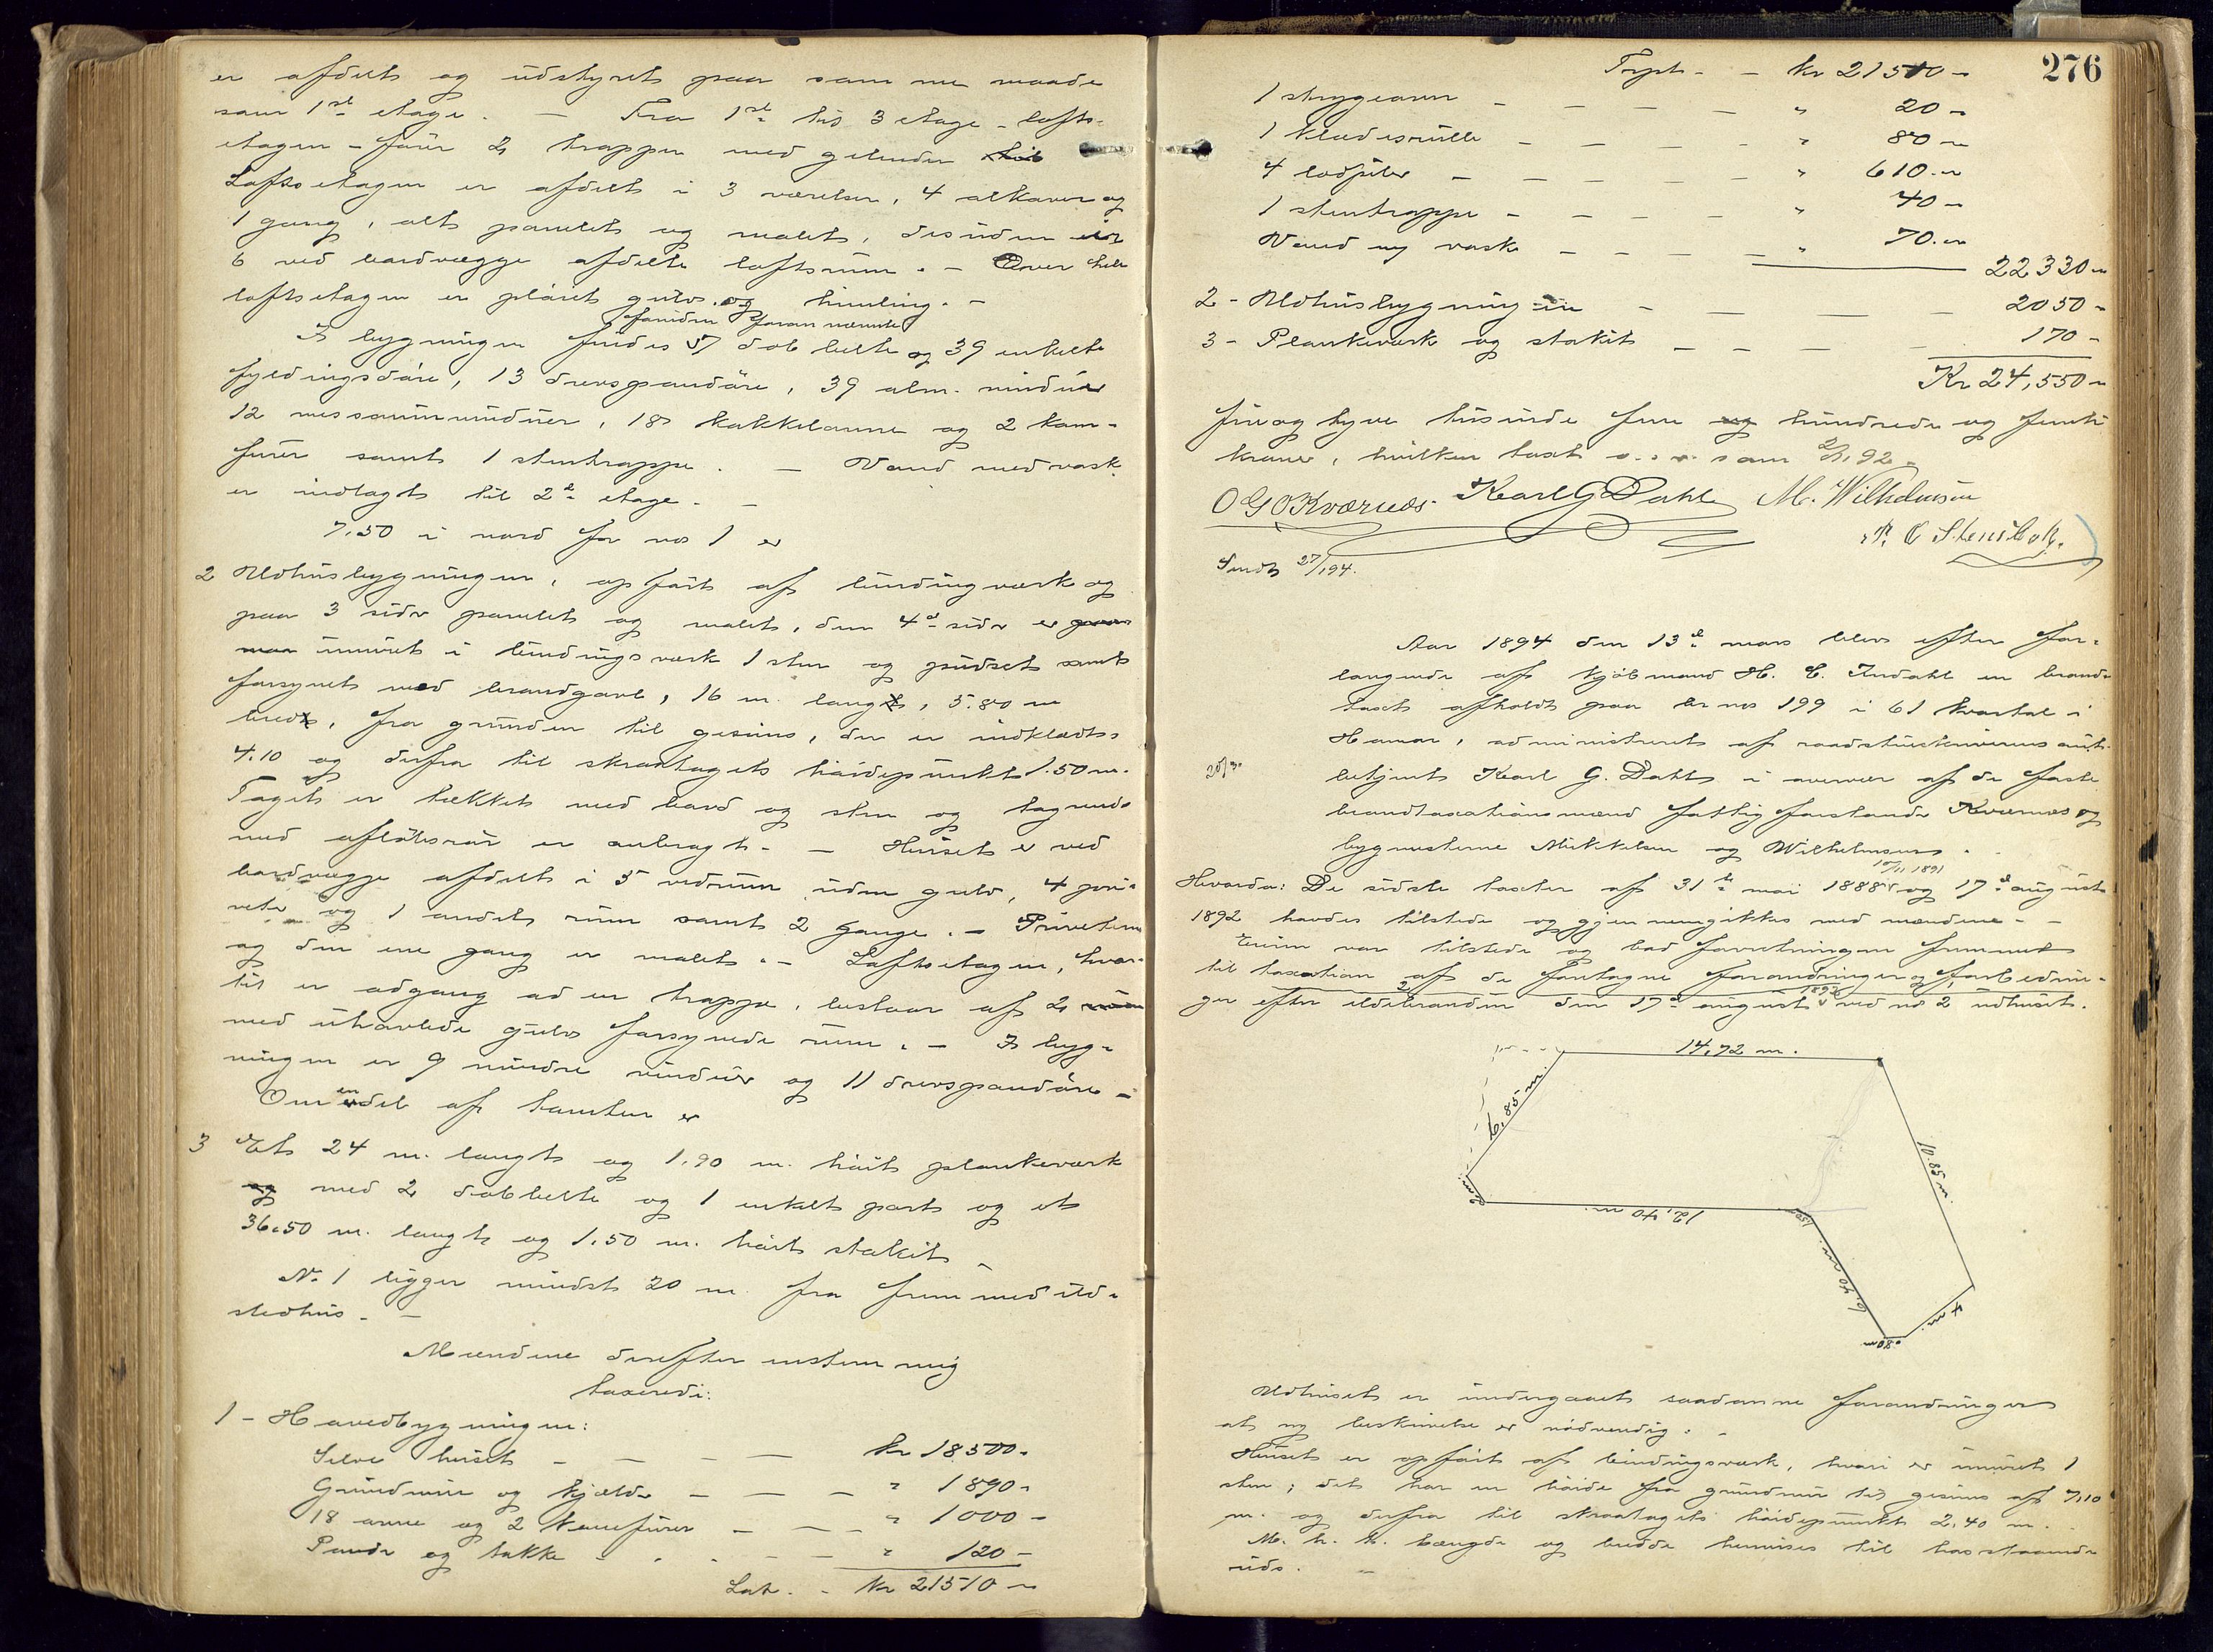 er afdelt og udstyret paa samme maade
som 1ste etage. — Fra 1ste til 3 etage - lofts-
etagen - fører 2 trapper med gelender
Loftsetagen er afdelt i 3 værelser, 4 alkover og
1 gang, alt panelet og malet, desuden er
6 ved bordvægge afdelte loftsrum. — Over hele
loftsetagen er pløiet gulv og himling. —
foruden foran nævnte
I bygningen findes 57 dobbelte og 39 enkelte
fyldingsdøre, 13 drevspandøre, 39 alm. vinduer
12 messaninvinduer, 18 kakkelovne og 2 kom-
fürer samt 1 stentrappe. — Vand med vask
er indlagt til 2d etage. —
7.50 i nord for no 1 er
2 Udhusbygningen, opført af bindingværk og
paa 3 sider panelet og malet, den 4d side er
inmuret i bindingsværk 1 sten og pudset samt
forsynet med brandgavl, 16 m. lang, 5.80 m
bred, fra grunden til gesims, der er indklædt,
4.10 og derfra til skraatagets høidepunkt 1.50 m.
Taget er tækket med bord og sten og tagrende
med afløbsrør er anbragt. — Huset er ved
bordvægge afdelt i 5 vedrum uden gulv, 4 pri-
veter og 1 andet rum samt 2 gange. — Priveterne
og den ene gang er malet. — Loftsetagen, hvor-
til er adgang ad en trappe, bestaar af 2
med uhøvlede gulve forsynede rum. — I byg-
ningen er 9 mindre vinduer og 11 drevspandøre —
Om en del af tomten er
3 Et 24 m. langt og 1.90 m. høit plankeværk
med 2 dobbelte og 1 enkelt port og et
36.50 m. langt og 1.50 m. høit stakit
No 1 ligger mindst 20 m. fra fremmed ild-
stedhus. —
Mændene derefter enstemmig
taxerede:
1 - Hovedbygningen:
Selve huset — — — — kr 18500 -
Grundmur og kjelder — — — " 1890 -
18 ovne og 2 komfürer — — — " 1000 -
Pande og takke — — — " 120 -
Lat. - kr 21510 -
276
Trpt - - kr 21510 -
1 strygeovn — — — — " 20 -
1 klædesrulle — — — — " 80 -
4 lodpiber — — — — " 610. -
1 stentrappe — — — — " 40 -
Vand og vask — — — — " 70. -
22330 -
2 - Udhusbygningen — — — — 2050 -
3 - Plankeværk og stakit — — — — 170 -
Kr 24,550 -
fire og tyve tusinde fem hundrede og femti
kroner, hvilken taxt
O G O Kværnes. Karl G Dahl M. Wilhelmsen
P. C Stensbak.
Sendt 27/1 94.
Aar 1894 den 13de mars blev efter for-
langende af kjøbmand H. C. Indahl en brand-
taxt afholdt paa br no 199 i 61 kvartal i
Hamar, administreret af raadstueskriverens aut.
betjent Karl G. Dahl i overvær af de faste
brandtaxationsmænd fattigforstander Kværnes og
bygmesterne Mikkelsen og Wilhelmsen.
Hvorda: De sidste taxter af 31te mai 1888, 10/11 1891 og 17de august
1892 havdes tilstede og gjennemgikkes med mændene. —
Eieren var tilstede og bad forretningen fremmet
til taxation af de foretagne forandringer og forbedrin-
ger efter ildebranden den 17de august 1893 ved no 2 udhuset.
14,72 m.
6,85 m.
2 m.
12,40 m.
10.85 m.
6,40 m.
4 m.
0.80 m
Udhuset er undergaaet saadanne forandringer
at ny beskrivelse er nødvendig. —
Huset er opført af bindingsværk, hvori er inmuret 1
sten; det har en høide fra grundmur til gesims af 7,10
m. og derfra til skraatagets høidepunkt 2,40 m.
M. h. t. længde og bredde henvises til hosstaaende
rids. —